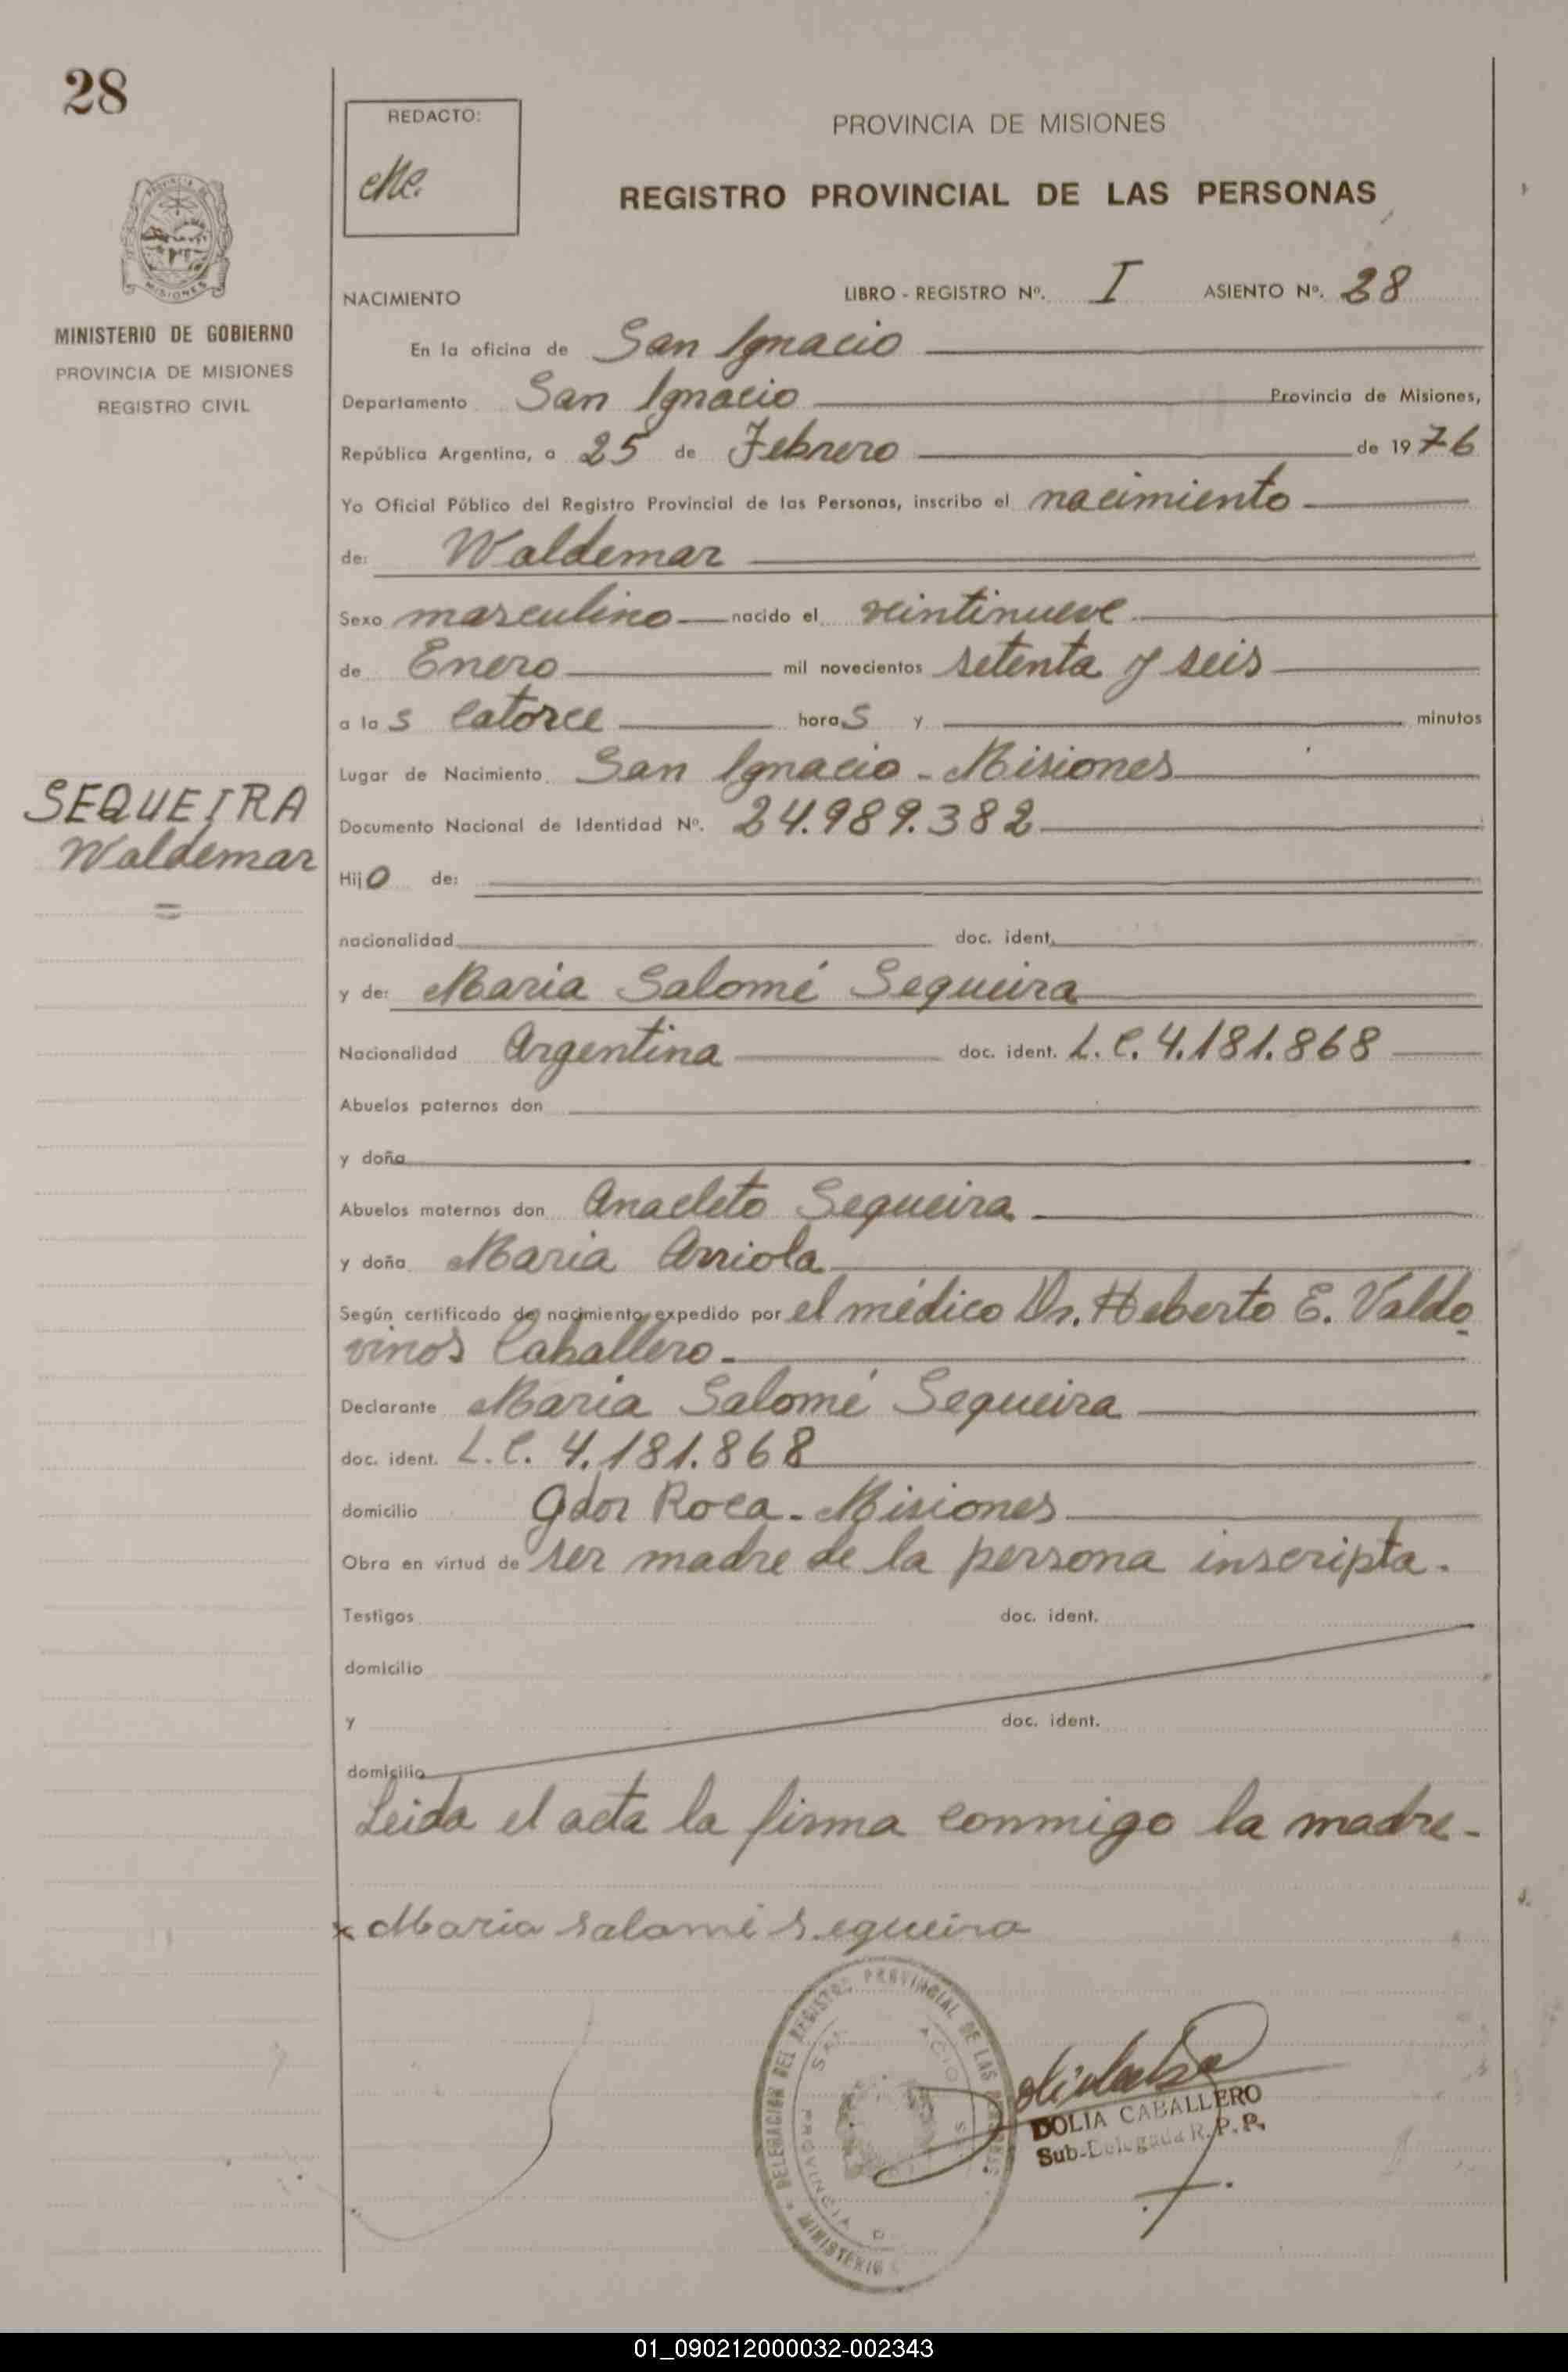 28
REDACTO:
PROVINCIA DE MISIONES
REGISTRO PROVINCIAL DE LAS PERSONAS
MISIONES
MINISTERIO DE GOBIERNO
PROVINCIA DE MISIONES
REGISTRO CIVIL
NACIMIENTO LIBRO - REGISTRO Nº. I ASIENTO Nº. 28
En la oficina de San Ignacio
Departamento San Ignacio Provincia de Misiones,
República Argentina, a 25 de Febrero de 1976
Yo Oficial Público del Registro Provincial de las Personas, inscribo el nacimiento
de: Waldemar
Sexo masculino nacido el veintinueve
de Enero mil novecientos setenta y seis
a las catorce horas y minutos
Lugar de Nacimiento San Ignacio - Misiones
SEQUEIRA
Waldemar
Documento Nacional de Identidad Nº. 24.989.382
Hijo de:
nacionalidad doc. ident.
y de: Maria Salomé Sequeira
Nacionalidad Argentina doc. ident. L.C. 4.181.868
Abuelos paternos don
y doña
Abuelos maternos don Anacleto Sequeira
y doña Maria Arriola
Según certificado de nacimiento expedido por el médico Dr. Heberto E. Valdo
vinos Caballero.
Declarante Maria Salomé Sequeira
doc. ident. L.C. 4.181.868
domicilio Gdor Roca - Misiones
Obra en virtud de ser madre de la persona inscripta.
Testigos doc. ident.
domicilio
y doc. ident.
domicilio
Leida el acta la firma conmigo la madre-
x Maria Salomé Sequeira
DELEGACIÓN DEL REGISTRO PROVINCIAL DE LAS
MINISTERIO
DOLIA CABALLERO
Sub-Delegada R.P.P.
01_090212000032-002343